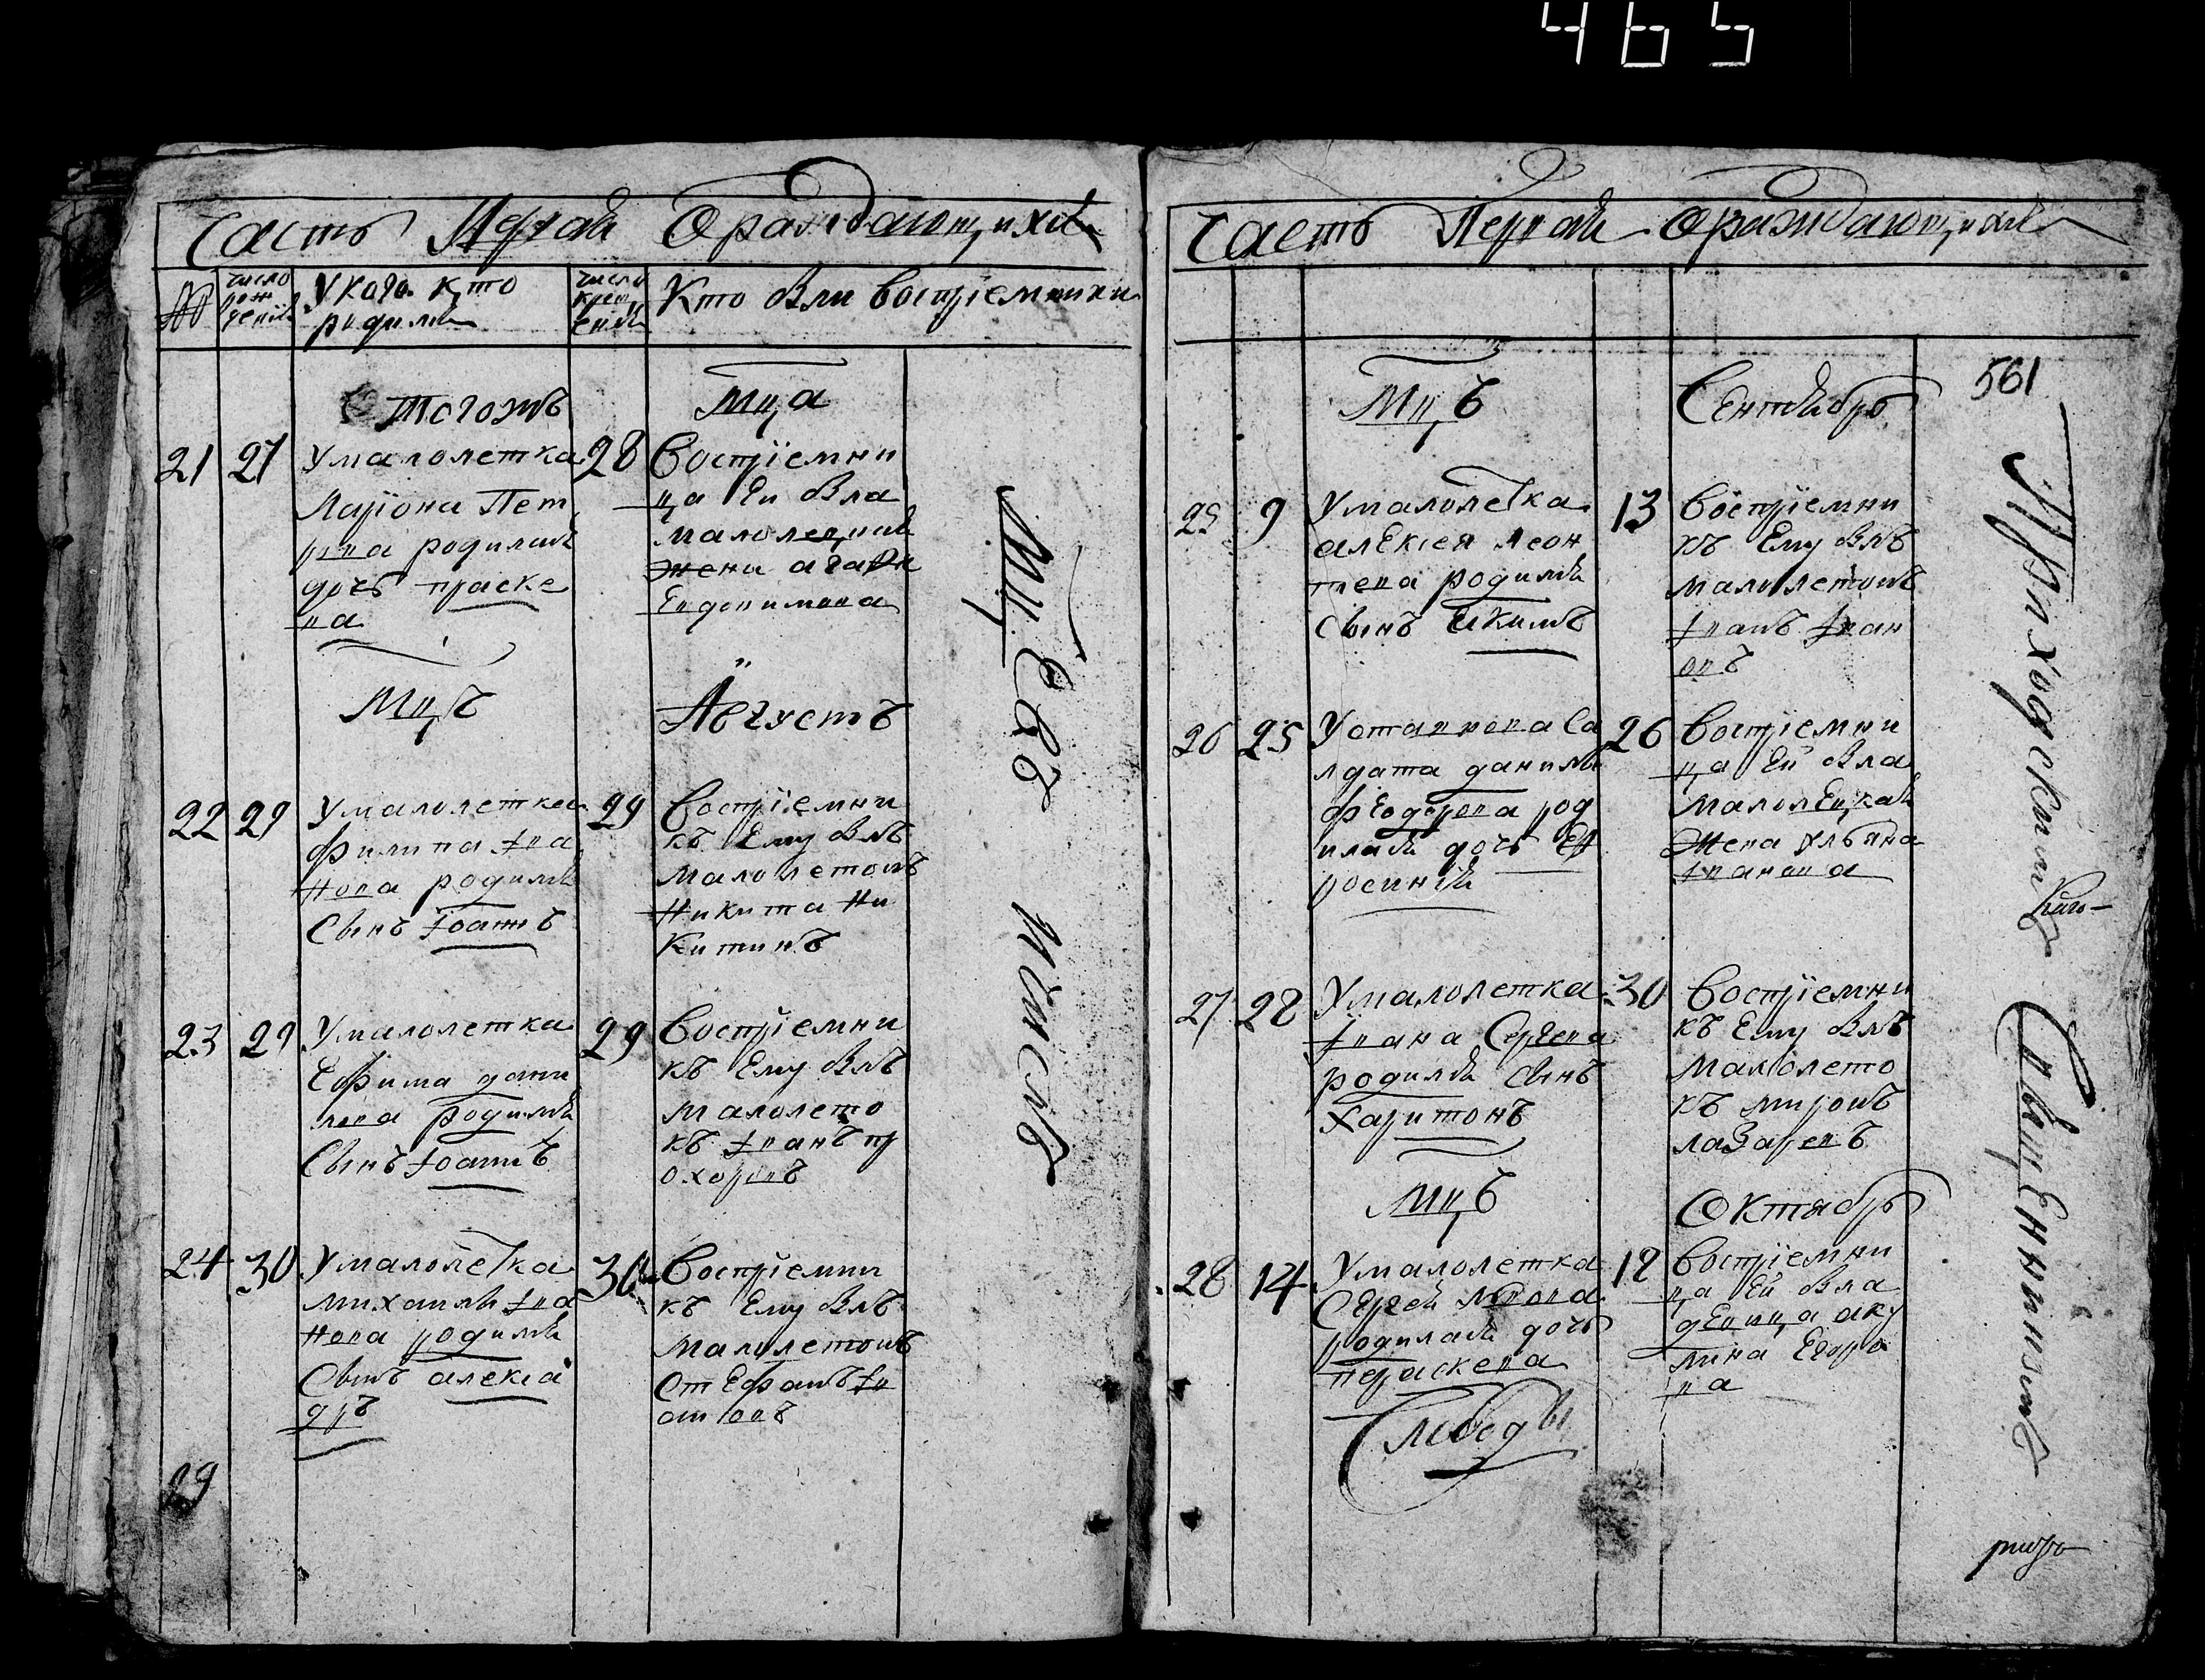 465
Часть Первая О раждающихся
№
число рож дения
У кого кто родился
число крещ ения
Кто были восприемники
Тогожъ
Мца
21
27
У малолетка
Лариона Пет
рова родилась
дочь праске
ва
28
Восприемни
ца Ей была
малолецкая
жена агафя
Евдокимова
Мцъ
Августъ
22
29
У малолетка
филипа Іва
нова родился
Сынъ Іоаннъ
29
Восприемни
къ Ему былъ
малолетокъ
Никита Ни
Китинъ
23
29
У малолетка
Ефима дани
лова родился
Сынъ Іоаннъ
29
Восприемни
къ Ему былъ
малолето
къ Іванъ пр
охоровъ
24
30
У малолетка
михаила Іва
нова родился
Сынъ алекса
дръ
30
Восприемни
къ Ему былъ
малолетокъ
Стефанъ Ів
ановъ
29
Часть Первая О раждающихся
561
Мцъ
Сентябрь
25
9
У малолетка
алексея леон
тева родился
Сынъ Екимъ
13
Восприемни
къ Ему былъ
малолетокъ
Іванъ Іван
овъ
26
25
У отавнова са
лдата данила
федорова род
илась дочь Еф
росиния
26
Восприемни
ца Ей была
малолецкая
жена ульяна
Іванова
27
28
У малолетка
Івана Сергева
родился сынъ
харитонъ
30
Восприемни
къ Ему былъ
малолето
къ миронъ
лазаревъ
Мцъ
Октябрь
28
14
У малолетка
Сергея
родилась дочь
праскева
Слободы
18
Восприемни
ца Ей была
девица аку
лина Егоро
ва
Приходскимъ
Священникомъ